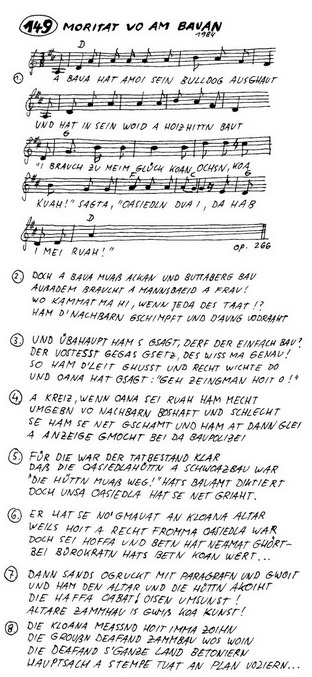 149 MORITAT VO AM BAUAN
1984
D
1. A BAUA HAT AMOI SEIN BULLDOG AUSGHAUT
UND HAT IN SEIN WOID A HOIZHITTN BAUT
G
"I BRAUCH ZU MEIM GLÜCK KOAN OCHSN, KOA
F C G
KUAH!" SAGTA, "OASIEDLN DUA I, DA HAB
D
I MEI RUAH!"
op. 266
2. DOCH A BAUA MUAß ACKAN UND BUTTABERG BAU
AUßADEM BRAUCHT A MANNSBUID A FRAU!
WO KAMMAT MA HI, WENN JEDA DES TAAT!?
HAM D'NACHBARN GSCHIMPFT UND D'AUNG VODRAHT
3. UND ÜBAHAUPT HAM S GSAGT, DERF DER EINFACH BAU?
DER VOSTESST GEGAS GSETZ, DES WISS MA GENAU!
SO HAM D'LEIT GHUSST UND RECHT WICHTE DO
UND OANA HAT GSAGT: "GEH ZEINGMAN HOIT O!"
4. A KREIZ, WENN OANA SEI RUAH HAM MECHT
UMGEBN VO NACHBARN BOSHAFT UND SCHLECHT
SE HAM SE NET GSCHAMT UND HAM AT DANN GLEI
A ANZEIGE GMOCHT BEI DA BAUPOLIZEI
5. FÜR DIE WAR DER TATBESTAND KLAR
DAß DIE OASIEDLAHÜTTN A SCHWOAZBAU WAR
"DIE HÜTTN MUAß WEG!" HATS BAUAMT DIKTIERT
DOCH UNSA OASIEDLA HAT SE NET GRIAHT.
6. ER HAT SE NO' GMAUAT AN KLOANA ALTAR
WEILS HOIT A RECHT FROMMA OASIEDLA WAR
DOCH SEI HOFFA UND BETN HAT NEAMAT GHÖRT-
BEI BÜROKRATN HATS BETN KOAN WERT...
7. DANN SANDS OGRUCKT MIT PARAGRAFN UND GWOIT
UND HAM DEN ALTAR UND DIE HÜTTN AKOIHT
DIE HAFFA OABAT! OISEN UMSUNST!
ALTARE ZAMMHAU IS GWIß KOA KUNST!
8. DIE KLOANA MEASSND HOIT IMMA ZOIHN
DIE GROUßN DEAFAND ZAMMBAU WOS WOIN
DIE DEAFAND S'GANZE LAND BETONIERN
HAUPTSACH A STEMPE TUAT AN PLAN VOZIERN...